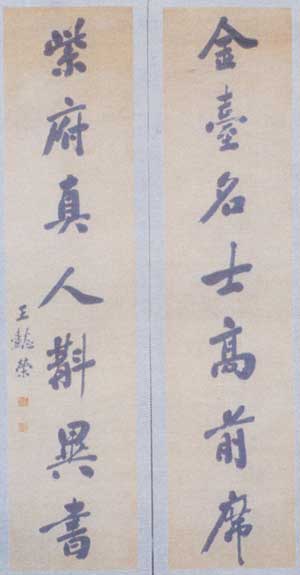 金臺名士高前席
紫府真人斠異書
王懿榮